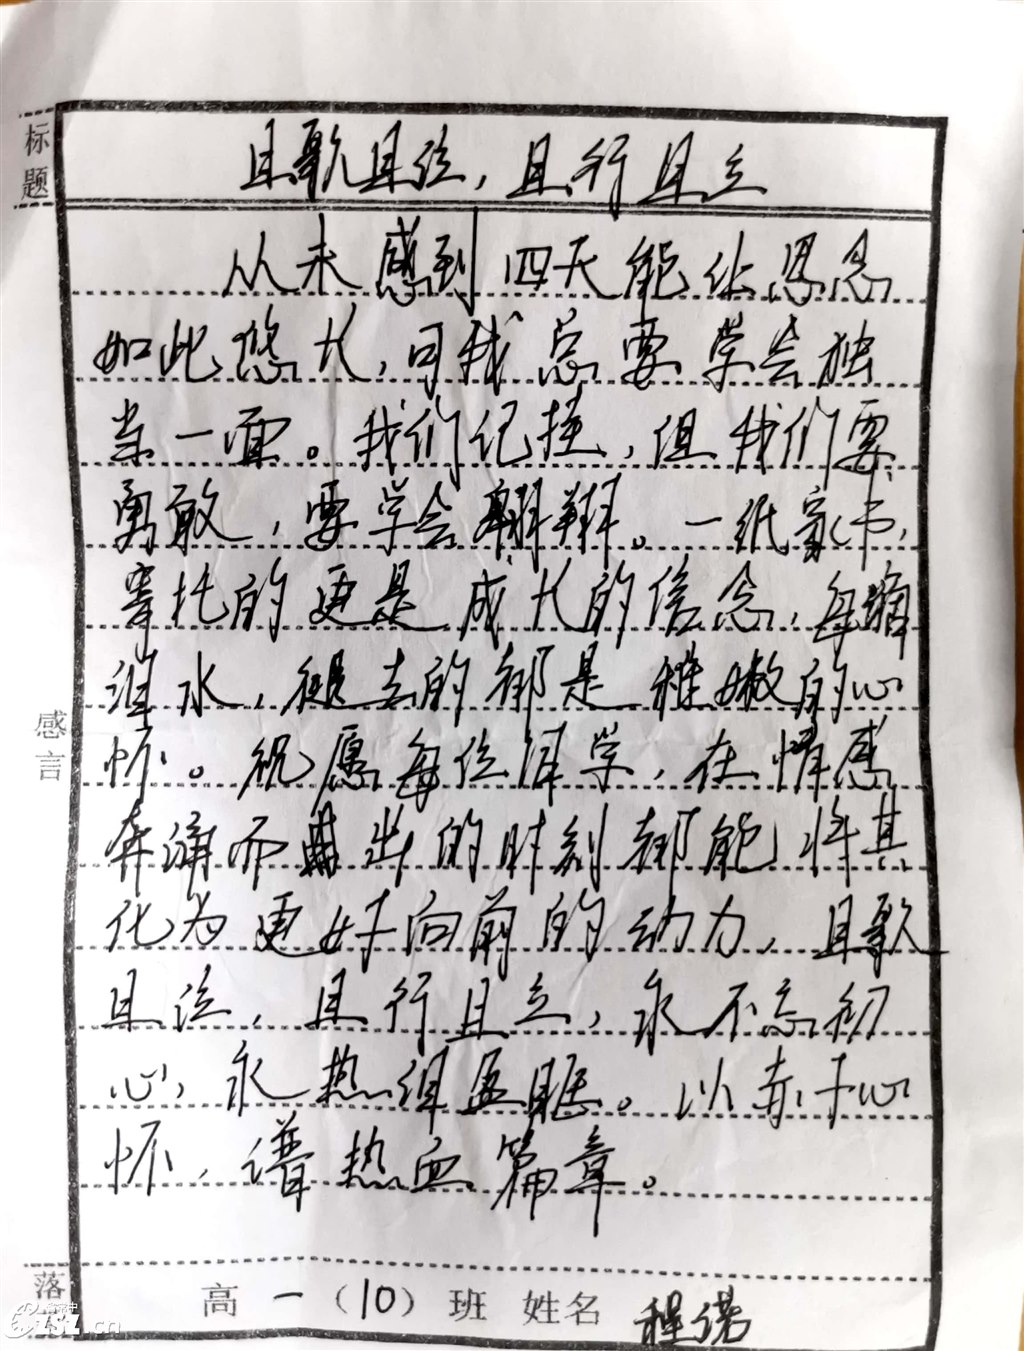 标题
且歌且泣，且行且立
从未感到四天能让思念
如此悠长，可我总要学会独
当一面。我们记挂，但我们要
勇敢，要学会翱翔。一纸家书，
寄托的更是成长的信念，每滴
泪水，褪去的都是稚嫩的心
怀。祝愿每位同学，在情感
奔涌而出的时刻都能将其
化为更好向前的动力，且歌
且泣，且行且立，永不忘初
心，永热泪盈眶。以赤子心
怀，谱热血篇章。
感言
落
高一（10）班 姓名 程诺